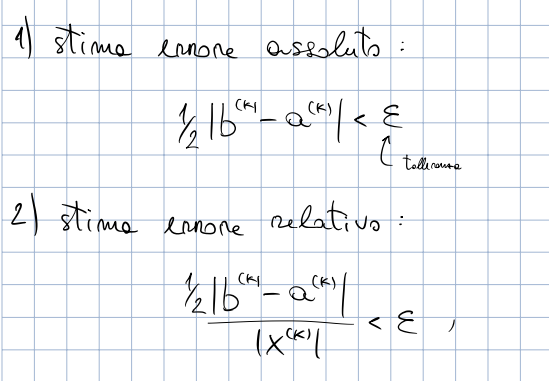 1) stima errore assoluto :
1/2 |b^(k) - a^(k)| < ε
tolleranza
2) stima errore relativo :
1/2 |b^(k) - a^(k)| / |x^(k)| < ε ,